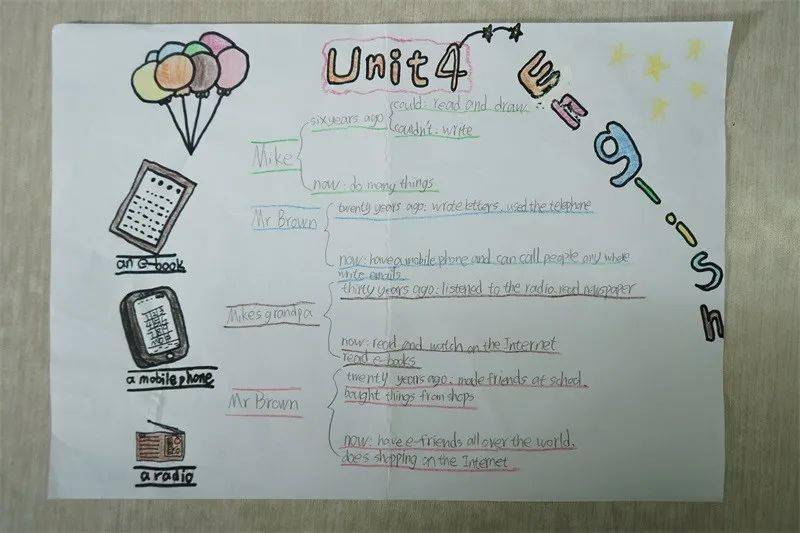 Unit 4
English
six years ago
could: read and draw
couldn't: write
Mike
now: do many things
Mr Brown
twenty years ago: wrote letters, used the telephone
now: have a mobile phone and can call people any whole
write emails
an e-book
Mikes grandpa
thirty years ago: listened to the radio. read newspaper
now: read and watch on the Internet
read e-books
a mobile phone
Mr Brown
twenty years ago: made friends at school.
bought things from shops
now: have e-friends all over the world.
does shopping on the Internet
a radio